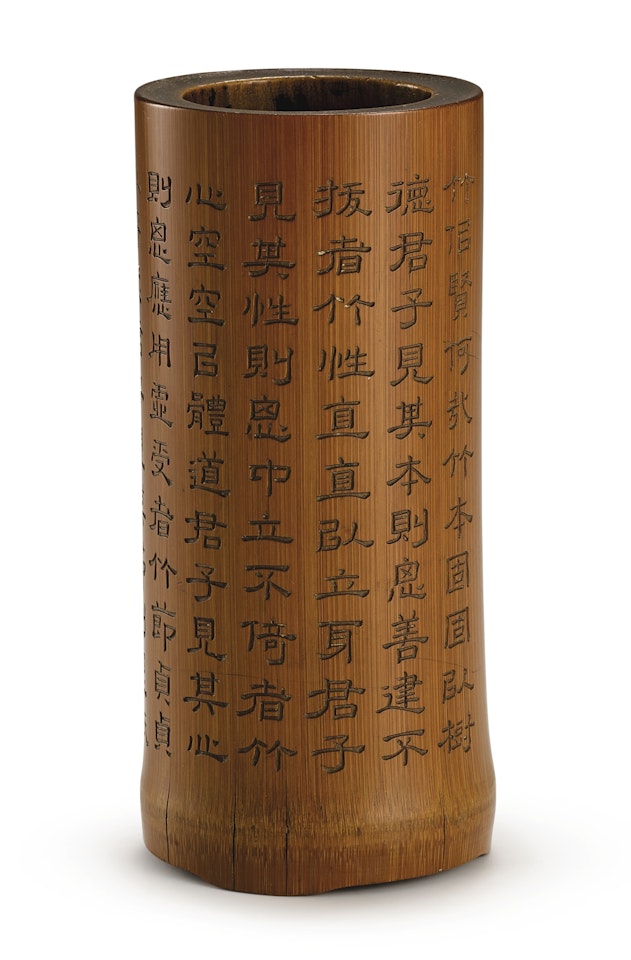 竹佀賢何哉竹本固固以樹
德君子見其本則思善建不
拔者竹性直直以立身君子
見其性則思中立不倚者竹
心空空㠯體道君子見其心
則思應用虛受者竹節貞貞